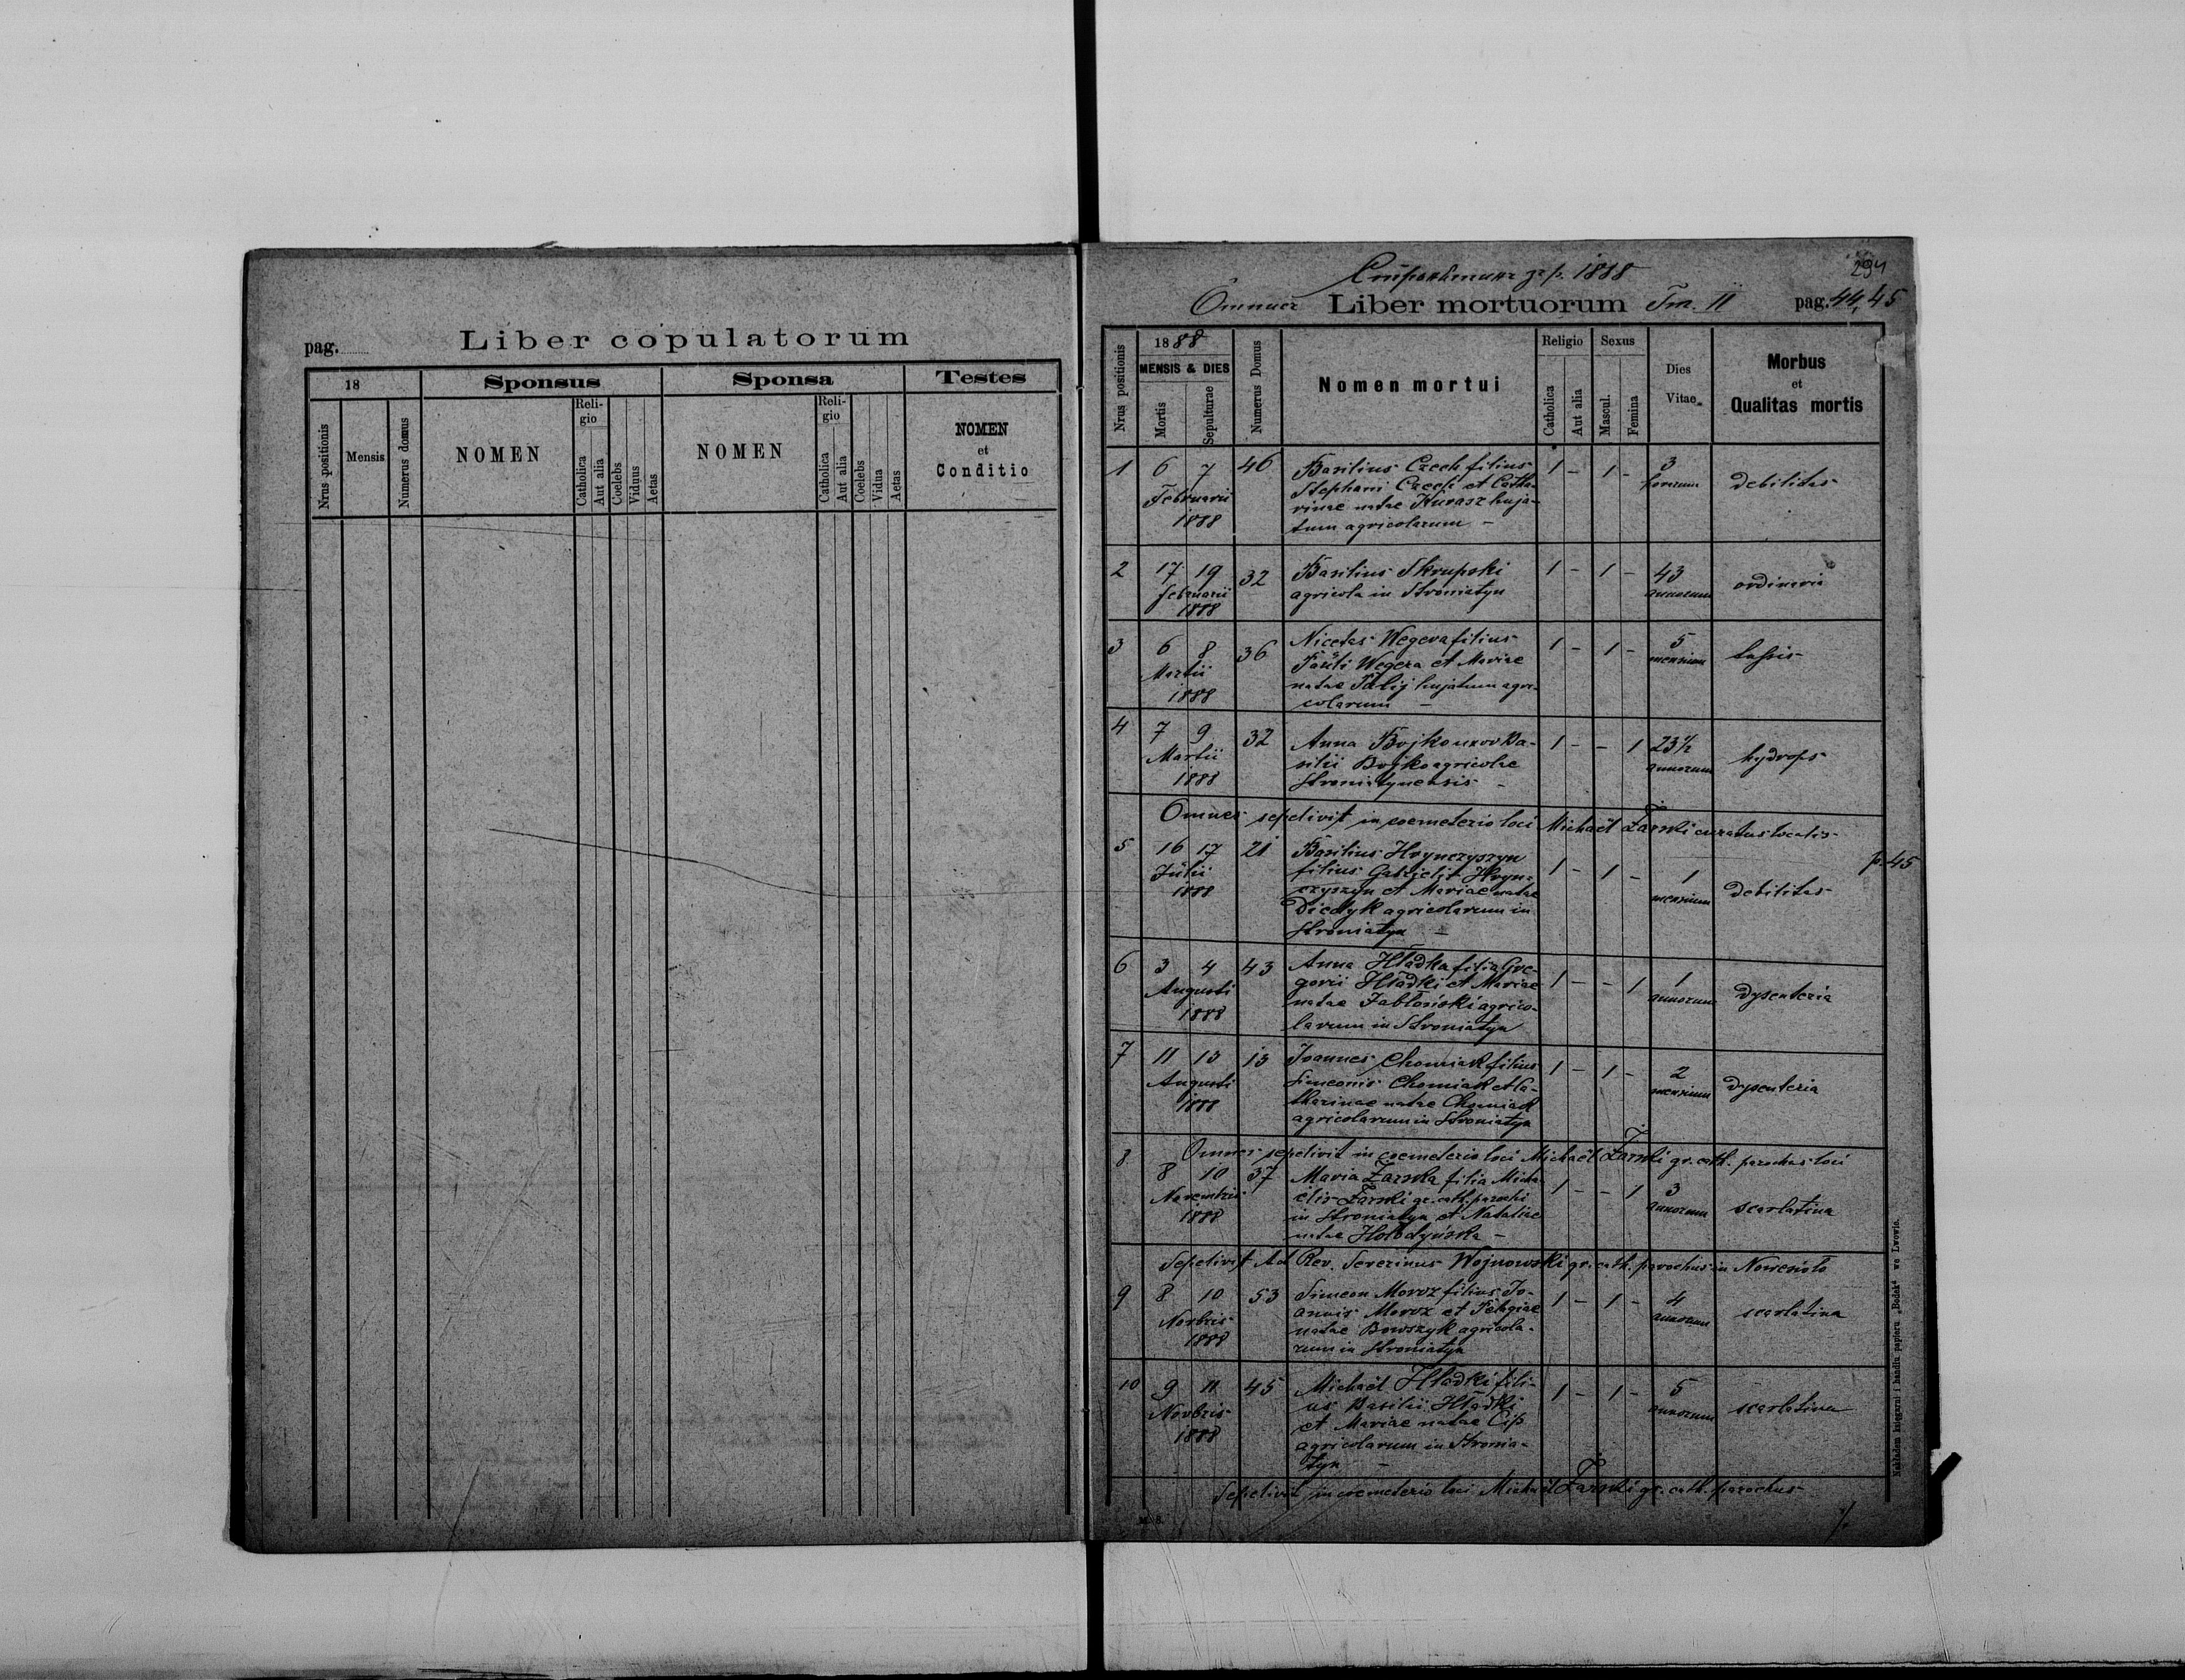 Liber copulatorum
pag.
18
Sponsus
Sponsa
Testes
Nrus positionis
Mensis
Numerus domus
NOMEN
Reli-
gio
Catholica
Aut alia
Coelebs
Viduus
Aetas
NOMEN
Reli-
gio
Catholica
Aut alia
Coelebs
Vidua
Aetas
NOMEN
et
Conditio
1888
294
Liber mortuorum Tm. II
pag. 44, 45
Nrus positionis
1888
MENSIS & DIES
Mortis
Sepulturae
Numerus Domus
Nomen mortui
Religio
Catholica
Aut alia
Sexus
Mascul.
Femina
Dies
Vitae
Morbus
et
Qualitas mortis
1 6 7 46 Basilius Czech filius 1 - 1 - 3 debilitas
Februarii Stephani Czech et Catha- horarum
1888 rinae natae Kurasz huja-
tum agricolarum -
2 17 19 32 Basilius Skrupski 1 - 1 - 43 ordinaria
februarii agricola in Stroniatyn annorum
1888
3 6 8 36 Nicetas Wegera filius 1 - 1 - 5 tussis
Martii Pauli Wegera et Mariae mensium
1888 natae Palij hujatum agri-
colarum -
4 7 9 32 Anna Bojko uxor Ba- 1 - - 1 23½ hydrops
Martii silii Bojko agricolae annorum
1888 Stroniatynensis -
Omnes sepelivit in coemeterio loci Michaël Żarski curatus localis
p. 45
5 16 17 21 Basilius Hrynczyszyn 1 - 1 - 1 debilitas
Julii filius Gabrielis Hryn- mensium
1888 czyszyn et Mariae natae
Diedyk agricolarum in
Stroniatyn -
6 3 4 43 Anna Hładka filia Gre- 1 - - 1 1 dysenteria
Augusti gorii Hładki et Mariae annorum
1888 natae Jabłoński agrico-
larum in Stroniatyn
7 11 13 13 Joannes Chomiak filius 1 - 1 - 2 dysenteria
Augusti Simeonis Chomiak et Ca- mensium
1888 tharinae natae Chomiak
agricolarum in Stroniatyn
Omnes sepelivit in coemeterio loci Michaël Żarski gr. cath. parochus loci
8 8 10 37 Maria Żarska filia Micha- 1 - - 1 3 scarlatina
Novembris ëlis Żarski gr. cath. parochi annorum
1888 in Stroniatyn et Nataliae
natae Hołodyńska -
Sepelivit Ad Rev. Severinus Wojnowski gr. cath. parochus in
9 8 10 53 Simeon Moroz filius Jo- 1 - 1 - 4 scarlatina
Novbris annis Moroz et Pelagiae annorum
1888 natae Bowszyk agricola-
rum in Stroniatyn
10 9 11 45 Michaël Hładki fili- 1 - 1 - 5 scarlatina
Novbris us Basilii Hładki annorum
1888 et Mariae natae Cip
agricolarum in Stronia-
tyn -
Sepelivit in coemeterio loci Michaël Żarski gr. cath. parochus
M. 8.
Nakładem księgarni i handlu papieru „Bodek" we Lwowie.